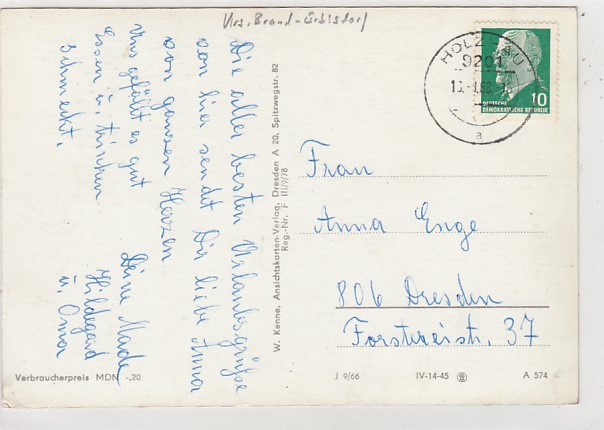 Die aller besten Urlaubsgrüße
von hier sendet Dir liebe Anna
von ganzen Herzen
Uns gefällt es gut
Essen u. trinken
schmeckt.
Deine Maade
Hildegard
u. Omar
W. Kenne, Ansichtskarten-Verlag, Dresden A 20, Spitzwegstr. 82
Reg.-Nr. F III/9/78
HOLZHAU
9201
a
10
DEUTSCHE
DEMOKRATISCHE REPUBLIK
Frau
Anna Enge
806 Dresden
37
Verbraucherpreis MDN -,20
J 9/66
IV-14-45
A 574